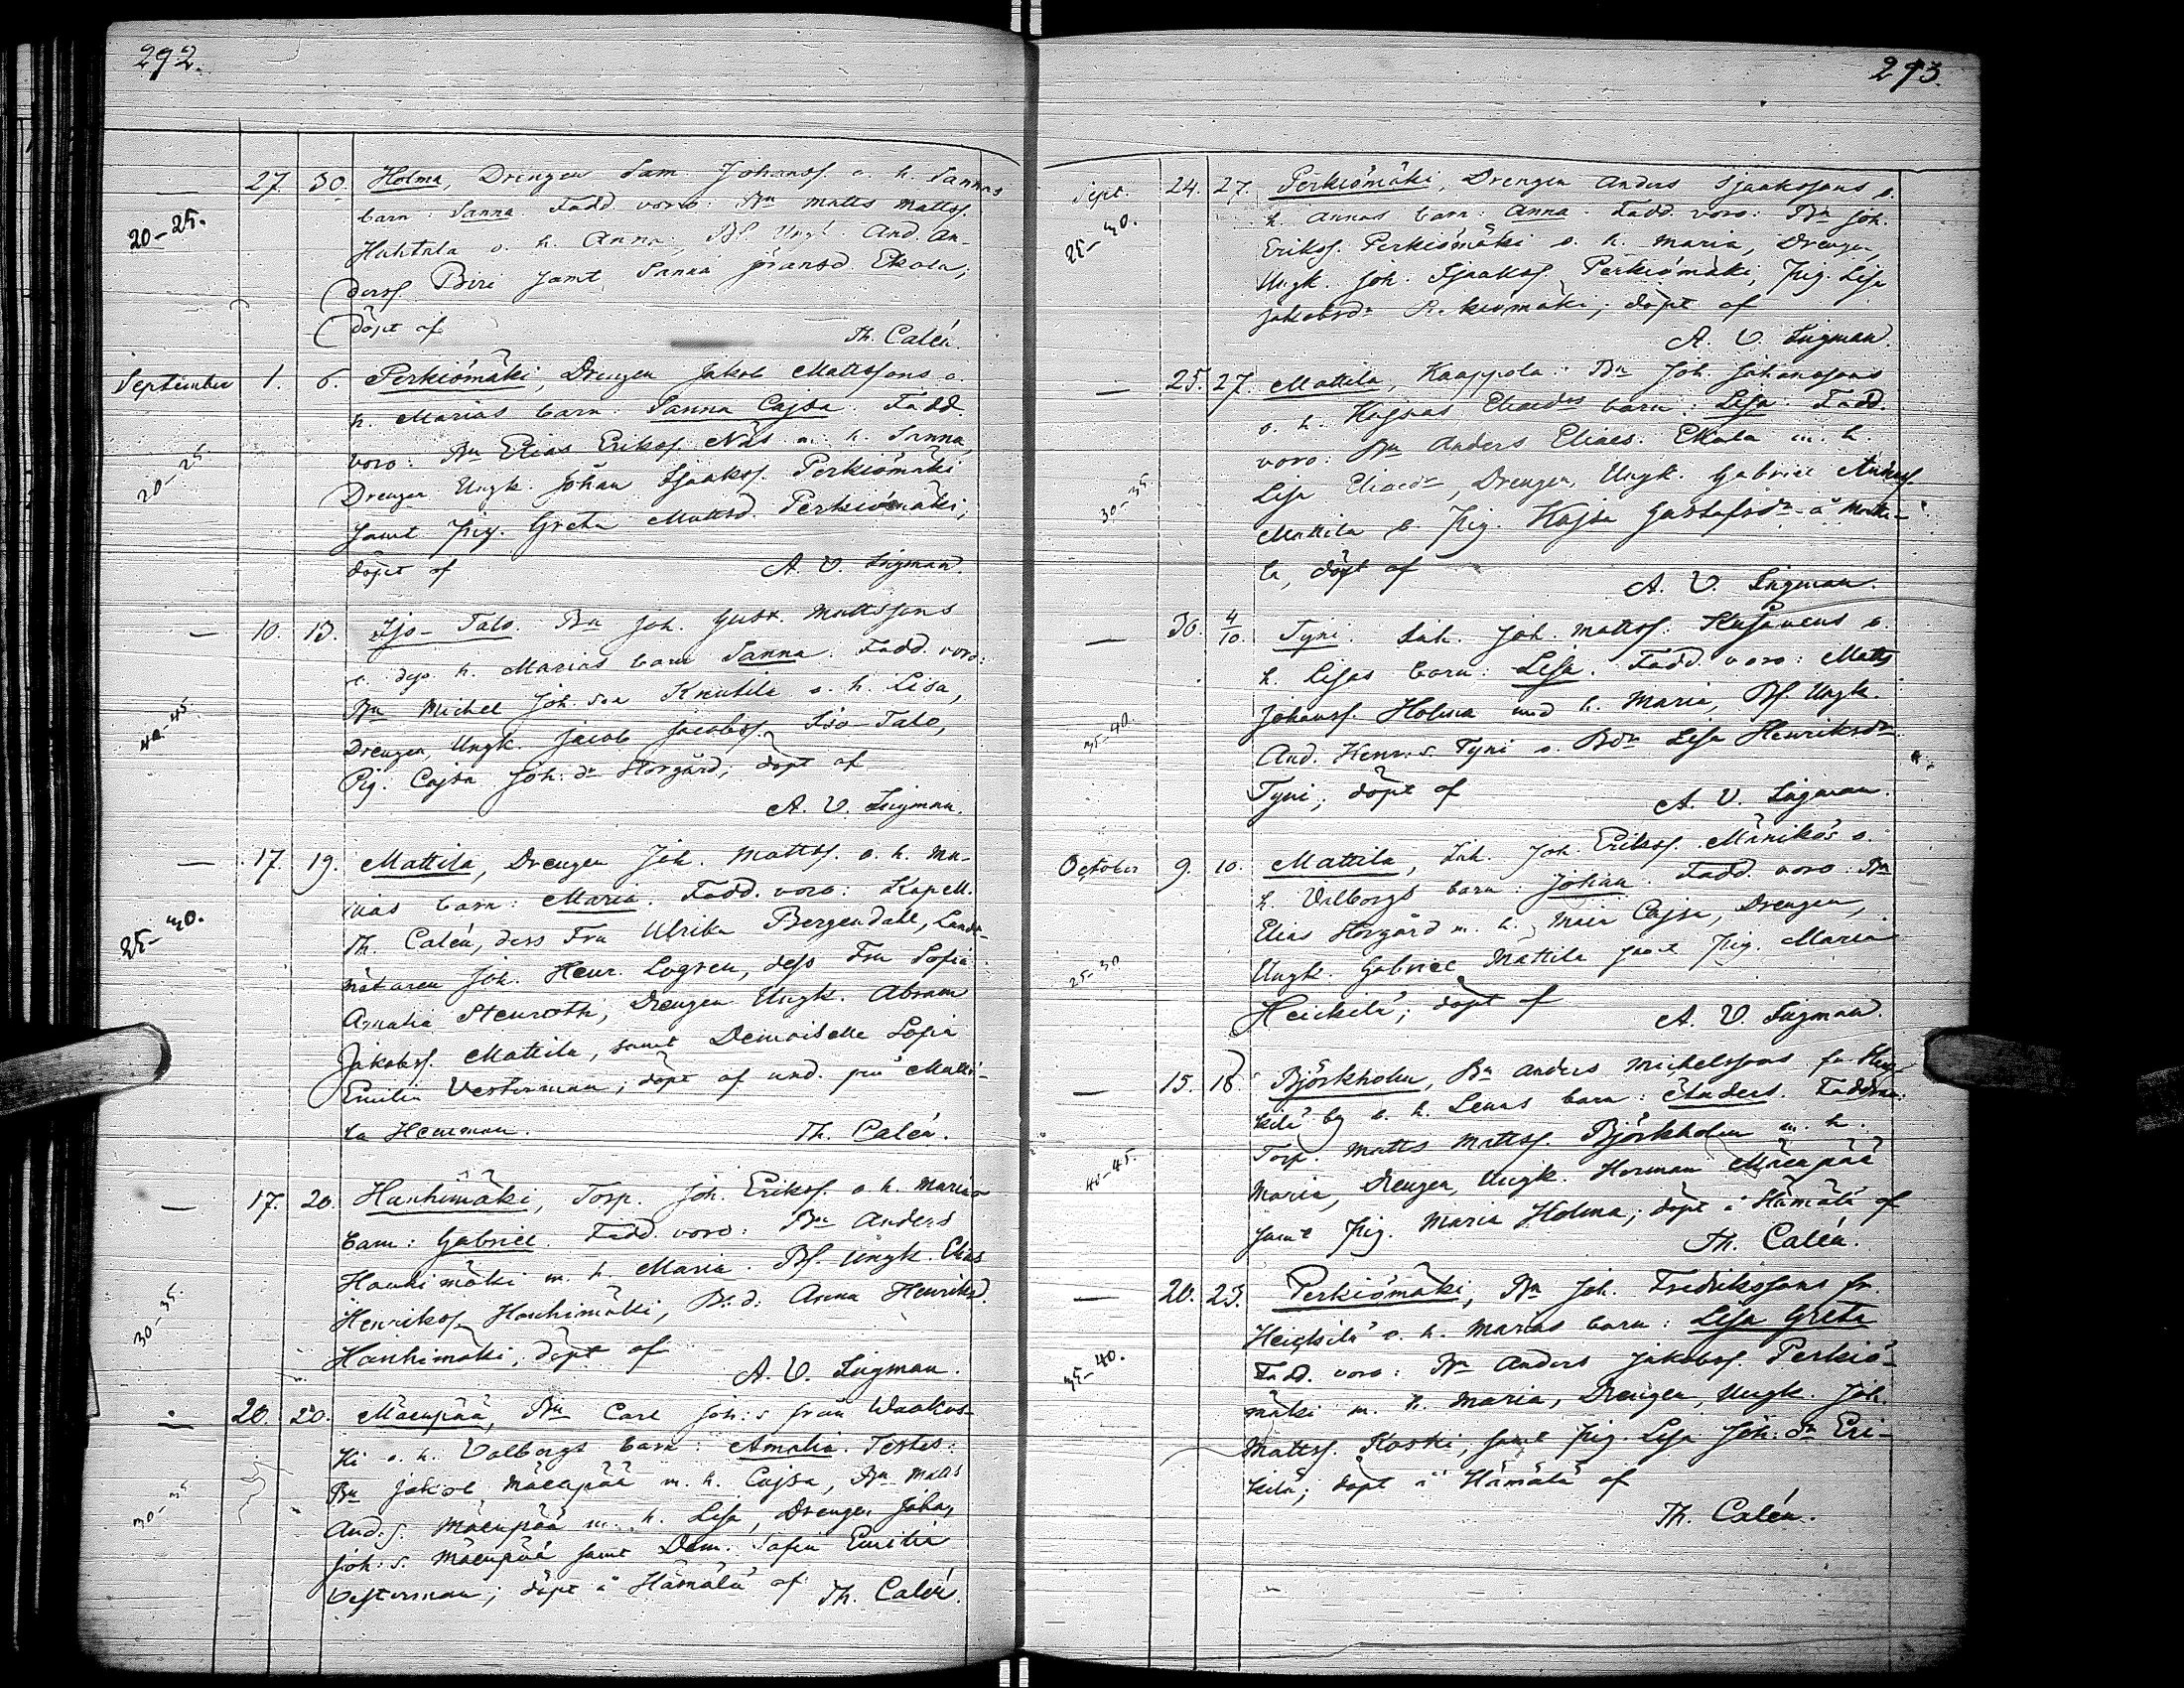 292.
— 27. 30. Holma, Drengen Sam. Johanss. o. h. Sannas
20–25. barn: Sanna. Fadd. voro: Bn Matts Mattss.
Huhtala o. h. Anna, Bs. Ungk. And. An-
derss. Biri samt Sanna Jöransd. Ekola;
döpt af Th. Caleń.
September 1. 6. Perkiömäki, Drengen Jakob Mattssons o.
h. Marias barn: Sanna Cajsa. Fadd.
voro: Bn Elias Erikss. Näs m. h. Sanna,
20–25. Drengen Ungk. Johan Isaakss. Perkiömäki
samt Pig. Greta Mattsd. Perkiömäki;
döpt af A. V. Ingman.
— 10. 13. Iso-Talo. Bn Joh. Gust. Mattssons
o. dess h. Marias barn Sanna. Fadd. voro:
Bn Michel Joh. son Knutila o. h. Lisa,
40–45. Drengen, Ungk. Jacob Jacobss. Iso-Talo,
Pig. Cajsa Joh: dr Storgård; döpt af
A. V. Ingman.
— 17. 19. Mattila, Drengen Joh. Mattss. o. h. Ma-
rias barn: Maria. Fadd. voro: Kapell.
25–30. Th. Caleń, dess Fru Ulrika Bergendahl, Landt-
mätaren Joh. Henr. Logren, dess Fru Sofia
Amalia Stenroth, Drengen Ungk. Abram
Jakobss. Mattila, samt Demoiselle Sofia
Emilia Vesterman; döpt af und. på Matti-
la Hemman. Th. Caleń.
— 17. 20. Hanhimäki, Torp. Joh. Erikss. o. h. Marias
barn: Gabriel. Fadd. voro: Bn Anders
Hanhimäki m. h. Maria. Bs. Ungk. Elias
30–35. Henrikss. Hanhimäki, B. d. Anna Henriksd.
Hanhimäki, döpt af
A. V. Ingman.
— 20. 20. Mäenpää, Bn Carl Joh: s från Waakus-
ki o. h. Valborgs barn: Amalia. Testes:
Bn Jakob Mäenpää m. h. Cajsa, Bn Matts
30–35 And. s. Mäenpää m. h. Lisa, Drengen Johan
Joh: s. Mäenpää samt Dem. Sofia Emilia
Vesterman; döpt i Hämälä af Th. Caleń.
293.
Sept. 24. 27. Perkiömäki, Drengen Anders Isaakssons o.
25–30. h. Annas barn: Anna. Fadd. voro: Bn Joh.
Erikss. Perkiömäki o. h. Maria, Drengen,
Ungk. Joh. Isaakss. Perkiömäki, Pig. Lisa
Jakobsdr Perkiömäki; döpt af
A. V. Ingman.
— 25. 27. Mattila, Kaappola: Bn Joh. Johanssons
o. h. Kajsas Eliaedrs barn: Lisa. Fadd.
voro: Bn Anders Eliaes. Ekola m. h.
30–35. Lisa Eliaedr, Drengen, Ungk. Gabriel
Mattila o. Pig. Kajsa Gustafsdr å Matti-
la, döpt af A. V. Ingman.
— 30. 4/10. Tyni. Inh. Joh. Mattss. o.
h. Lisas barn: Lisa. Fadd. voro: Matts
Johanss. Holma med h. Maria, Bs. Ungk.
35–40. And. Henr: s. Tyni o. Bdr Lisa Henriksdr
Tyni; döpt af A. V. Ingman.
October 9. 10. Mattila, Inh. Joh. Erikss. Männikös o.
h. Valborgs barn: Johan. Fadd. voro: Bn
Elias Storgård m. h. Maia Cajsa, Drengen,
25–30 Ungk. Gabriel Mattila samt Pig. Maria
Heickilä; döpt af A. V. Ingman.
— 15. 18. Björkholm, Bn Anders Michelssons fr.
kilä by o. h. Lenas barn: Anders. Faddrar:
Torp. Matts Mattss. Björkholm m. h.
40–45. Maria, Drengen, Ungk. Herman Mäenpää
samt Pig. Maria Holma; döpt i Hämälä af
Th. Caleń.
— 20. 25. Perkiömäki, Bn Joh. Fredrikssons fr.
Heickilä o. h. Marias barn: Lisa Greta
35–40. Fadd. voro: Bn Anders Jakobss. Perkiö-
mäki m. h. Maria, Drengen, Ungk. Joh.
Mattss. Koski, samt Pig. Lisa Joh: dr Eri-
kilä; döpt i Hämälä af
Th. Caleń.